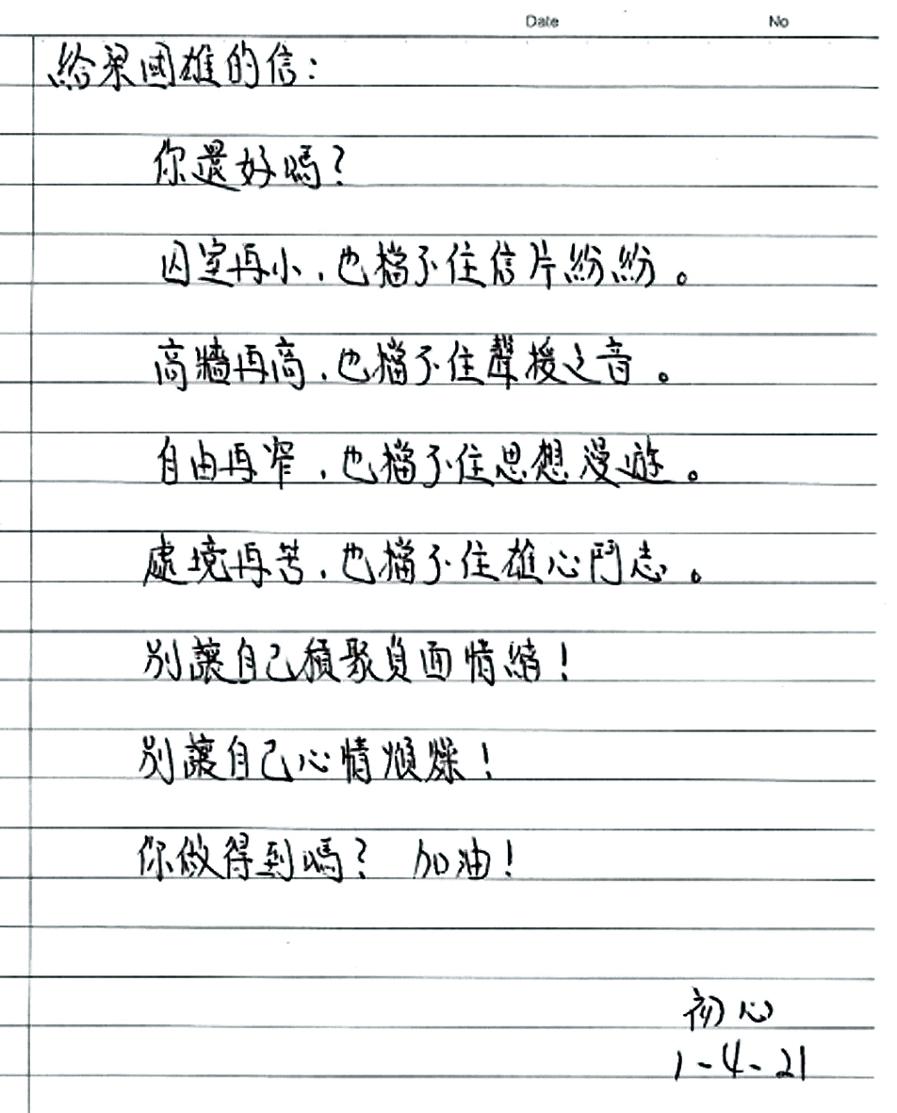 Date No
給梁國雄的信：
你還好嗎？
囚室再小，也檔不住信片紛紛。
高牆再高，也檔不住聲援之音。
自由再窄，也檔不住思想漫遊。
處境再苦，也檔不住雄心鬥志。
別讓自己積聚負面情緒！
別讓自己心情煩燥！
你做得到嗎？ 加油！
初心
1-4-21